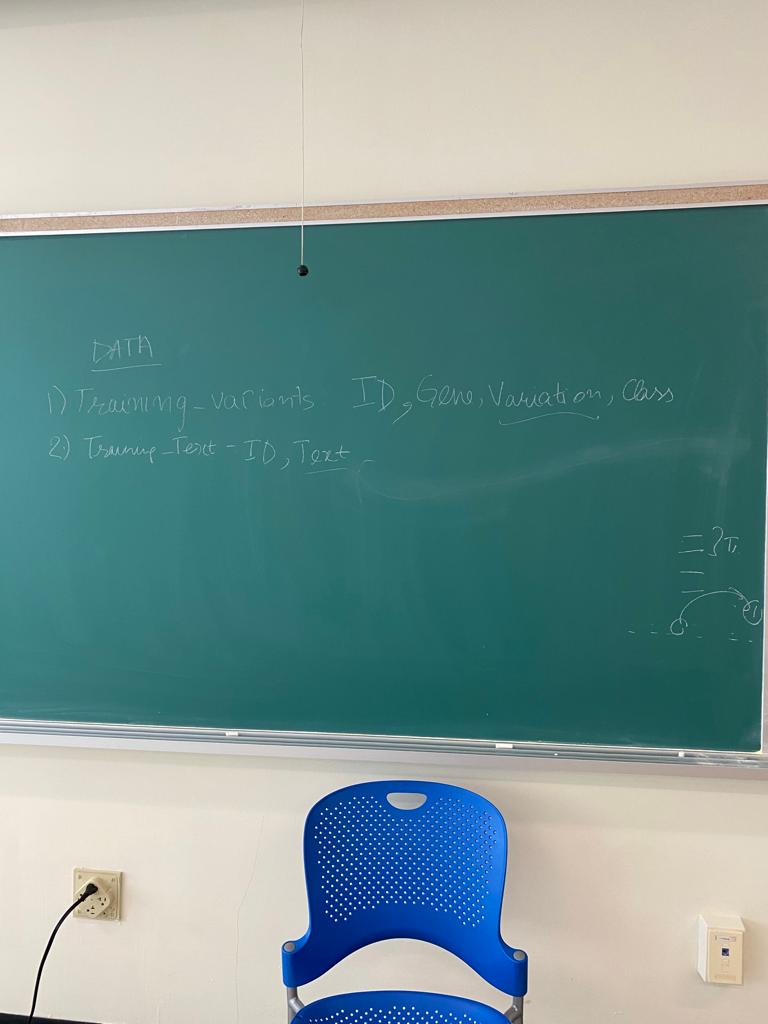 DATA
1) Training_variants ID, Gene, Variation, Class
2) Training_Text - ID, Text